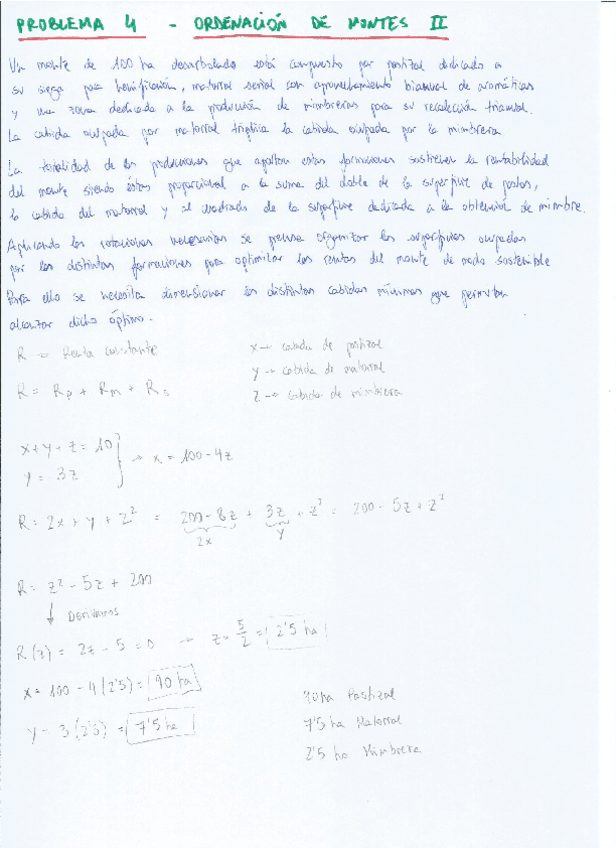 PROBLEMA 4 - ORDENACIÓN DE MONTES II
Un monte de 100 ha desarbolado está compuesto por pastizal dedicado a
su siega para henificación, matorral serial con aprovechamiento bianual de aromáticas
y una zona dedicada a la producción de mimbreras para su recolección trianual.
La cabida ocupada por matorral triplica la cabida ocupada por la mimbrera
La totalidad de las producciones que aportan estas formaciones sostienen la rentabilidad
del monte siendo éstas proporcional a la suma del doble de la superficie de pastos,
la cabida del matorral y al cuadrado de la superficie dedicada a la obtención de mimbre.
Aplicando las rotaciones necesarias se piensa organizar las superficies ocupadas
por las distintas formaciones para optimizar las rentas del monte de modo sostenible
Para ello se necesita dimensionar las distintas cabidas mínimas que permitan
alcanzar dicho óptimo.
R → Renta constante
x → cabida de pastizal
y → cabida de matorral
R = Rp + Rm + Rs
z → cabida de mimbrera
x+y+z = 100
y = 3z
→ x = 100 - 4z
R = 2x + y + z² = 200 - 8z + 3z + z² = 200 - 5z + z²
2x y
R = z² - 5z + 200
↓ Derivamos
R(z) = 2z - 5 = 0 → z = 5/2 = 2'5 ha
x = 100 - 4(2'5) = 90 ha
y = 3(2'5) = 7'5 ha
90 ha Pastizal
7'5 ha Matorral
2'5 ha Mimbrera